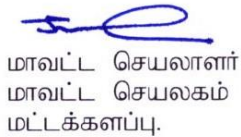 மாவட்ட செயலாளர்
மாவட்ட செயலகம்
மட்டக்களப்பு.